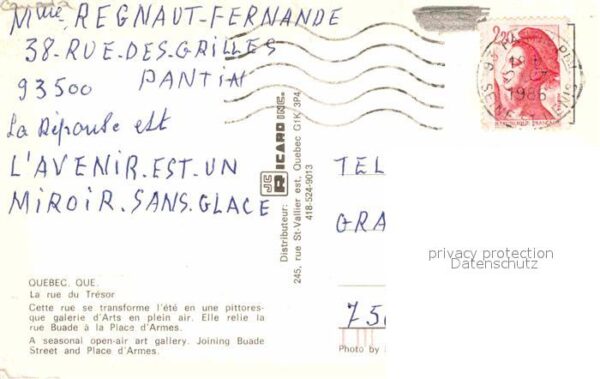 Canada
Mme REGNAUT-FERNANDE
38-RUE-DES-GRILLES
93500 PANTIN
La Réponse est
L'AVENIR.EST.UN
MIROIR.SANS.GLACE
QUEBEC, QUE.
La rue du Trésor
Cette rue se transforme l'été en une pittores-
que galerie d'Arts en plein air. Elle relie la
rue Buade à la Place d'Armes.
A seasonal open-air art gallery. Joining Buade
Street and Place d'Armes.
JC R RICARD INC.
Distributeur:
245, rue St-Vallier est, Quebec G1K 3P4
418-524-9013
2,20
1986
SEINE
TEL
GRA
privacy protection
Datenschutz
75
Photo by